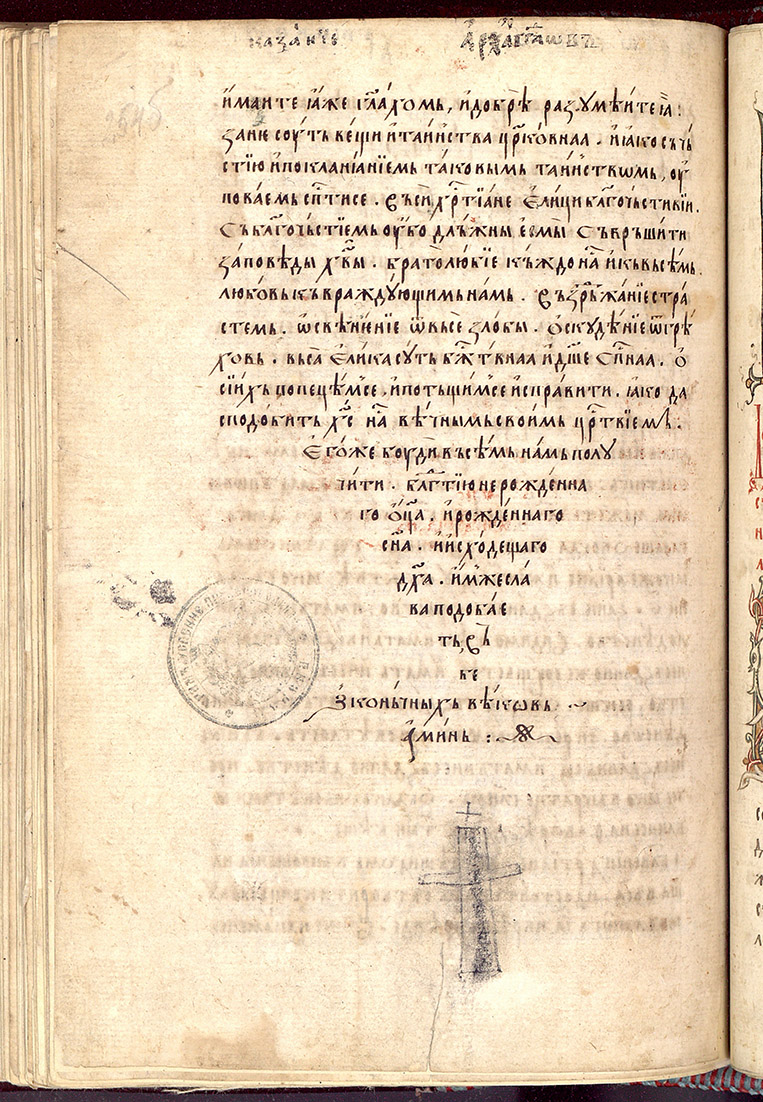 казанїе архаггл҃ѡвъ
2545
и҆маите ꙗ҆же гл҃ахомь, и҆добрѣ разꙋмѣите ꙗ҆̀:
зане соуть вещи и҆таинства цр҃ковнаа. и҆ꙗко съчь
стїю и҆покланꙗнїемь таковымь таинствѡмь, оу҆
поваемь сп҃тисе. Въси хр҃тїане Елици бл҃гочьстивїи.
Съ бл҃гочьстїемь оубо дльжны есмы Съврьшити
заповѣды хв҃ы. братолюбїе къждо на҃ и҆къ въсѣмь.
любовь къ враждꙋющимь намь. Въздрьжанїе стра
стемь. ѡсвѣненїе ѿ въсе злобы. Оскꙋдѣнїе ѿ грѣ
ховь. въса Елика сꙋть бж҃твнаа и҆ дш҃е Сп҃наа. О҆
сїихь попецѣмсе. и҆потьщимсе исправити. ꙗко да
сподобить хс҃ на҃ вѣчнымь своимь цр҃твїемь:
Егоже боуди въсѣмь намь полꙋ
чити. бл҃гтїю нерожденна
го ѡц҃а. и҆рожденнаго
сн҃а. и҆и҆сходещаго
дх҃а. и҆мже сла
ва подобае
ть, Въ
бе
зконьчныхъ вѣкѡвь
Аминь: